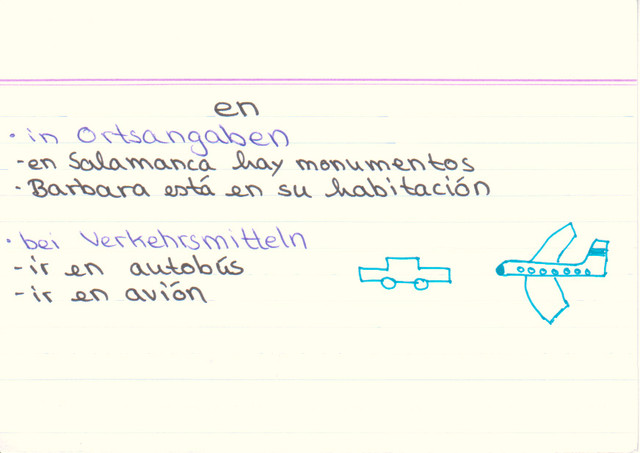 en
• in Ortsangaben
- en Salamanca hay monumentos
- Barbara está en su habitación
• bei Verkehrsmitteln
- ir en autobús
- ir en avión